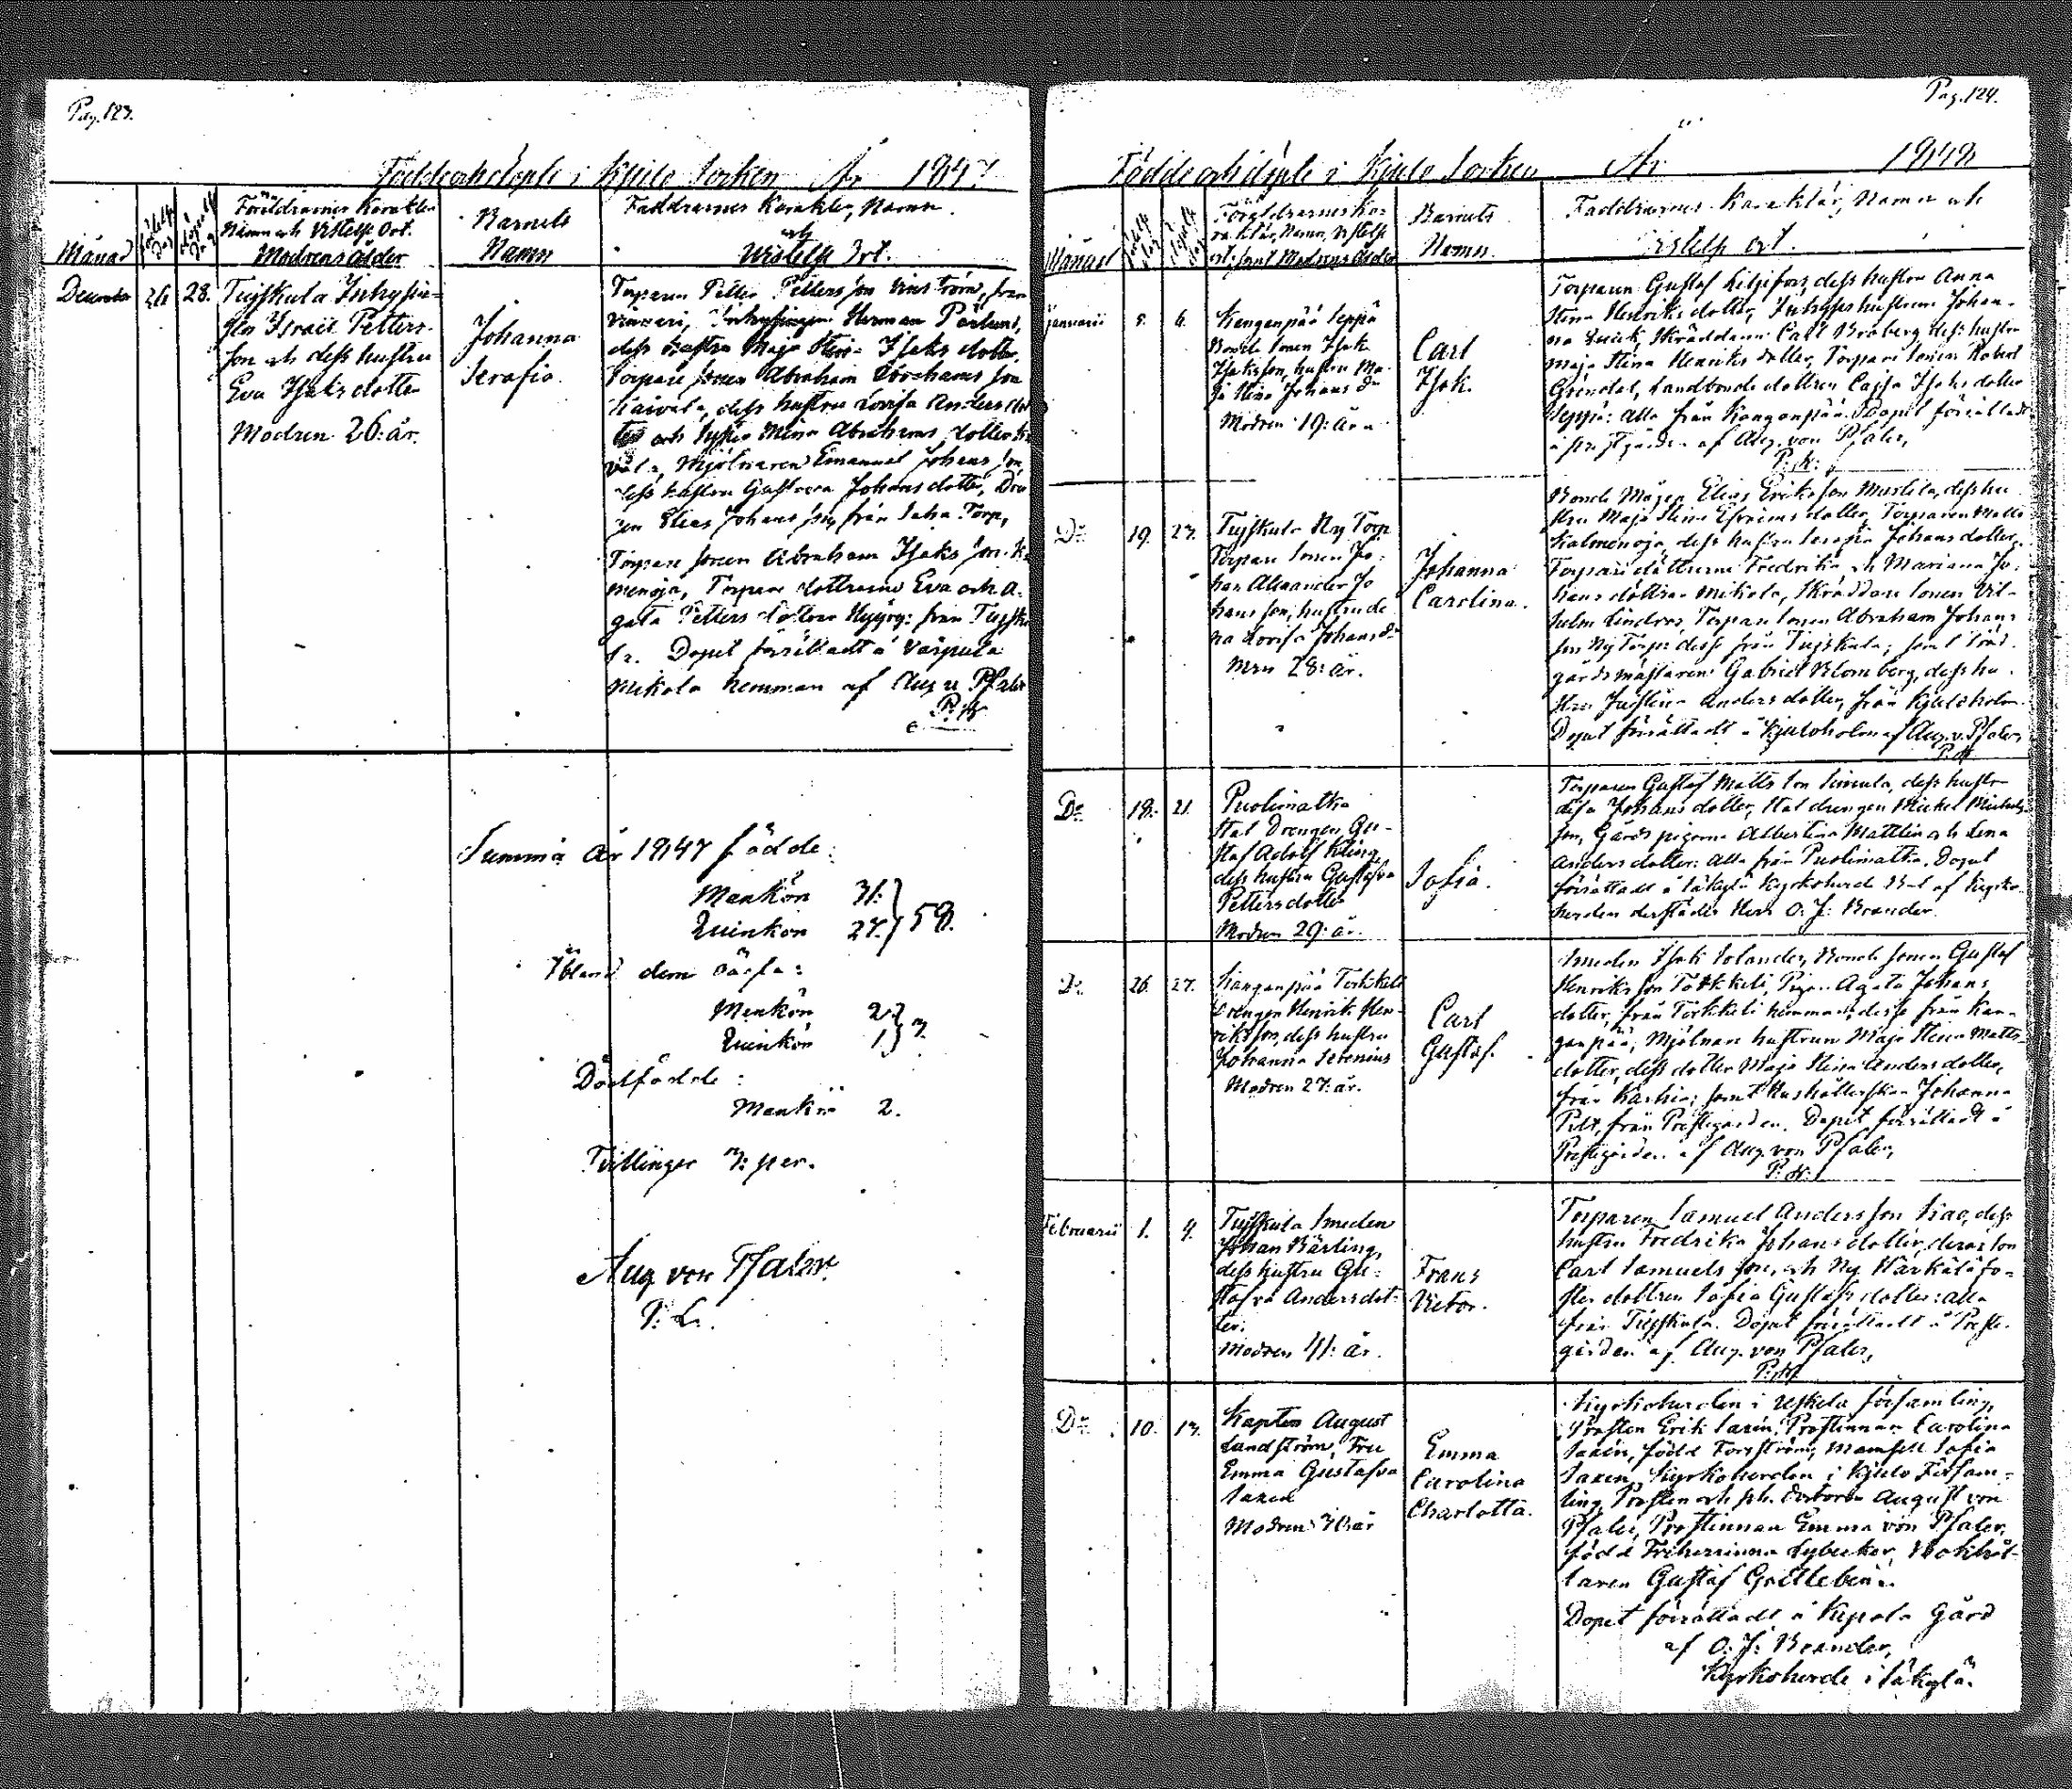 Pag. 123.
Födde och döpte i Kjulo Socken År 1847.
Månad
Födelse Dag
Döpelse Dag
Föräldrarnes Karakter
Namn och Vistelse Ort.
Modrens ålder
Barnets
Namn
Faddrarnes Karakter, Namn
och
Vistelse Ort.
December 26 28.
Tujskula Inhysin-
Israel Petters-
son och dess hustru
Eva Isaks dotter
Modren 26: år.
Johanna
Serafia.
Torparen Petter Pettersson från
Inhysingen Herman Pärlund,
dess hustru Maja Stina Isaks dotter,
Torpare sonen Abraham Abrahams son
dess hustru Lovisa Anders dot
ter och syster Mina Abrahams dotter
Mjölnaren Emanuel Johans son
dess hustru Gustava Johans dotter, Drän
gen Elias Johans son, från Torp,
Torpare sonen Abraham Isaks son
menoja, Torpare döttrarne Eva och A-
gata Petters döttrar från Tujsku
la. Dopet förrättadt å
Mikola hemman af Aug v Pfaler
P: H:
Summa år 1847 födde:
Mankön 31.
Quinkön 27. } 58.
Ibland dem oäkta:
Mankön 2.
Quinkön 1. } 3.
Dödfödde:
Mankön 2.
Tvillingar 3: par.
Aug von Pfaler.
P. L.
Pag. 124.
Födde och döpte i Kjulo Socken År 1848
Månad
Föräldrarnes Ka-
raktär, Namn, Vistelse
ort, samt Modrens ålder
Barnets
Namn.
Faddrarnes Karaktär, Namn och
Vistelse ort.
Januarii 5. 6.
Kanganpää Seppä
Bonde sonen Isak
Isaksson, hustru Ma-
ja Stina Johans dr
Modren 19: år
Carl
Isak.
Torparen Gustaf Liljefors, dess hustru Anna
Stina Henriks dotter, Inhyses hustrun Johan-
na Skräddaren Carl Broberg, dess hustru
Maja Stina Henriks dotter, Torpare sonen Robert
Landbonde dottren Cajsa Isaks dotter
Seppä: alla från Kanganpää. Dopet förrättadt
å prestgården af Aug. von Pfaler,
P: H:
Do 19. 23.
Tujskula Ny Torp
Torpare sonen Jo-
han Alexander Jo
hans son, hustru Le
na Lovisa Johans dr
Mrn 28: år.
Johanna
Carolina.
Bonde Mågen Elias Eriksson Mustila, dess hu
stru Maja Stina Efraims dotter, Torparen Matts
Kalmenoja, dess hustru Serafia Johans dotter,
Torpare döttrarne Fredrika och Mariana Jo-
hans döttrar Mikola, Skräddare sonen Vil-
helm Lindroos Torpare sonen Abraham Johans
son Ny Torp: desse från Tujskula; samt Träd-
gårdsmästaren Gabriel Blomberg, dess hu-
stru Justina Anders dotter, från Kjuloholm
Dopet förrättadt å Kjuloholm af Aug. v. Pfaler,
P: H:
Do 18. 21.
Puolimatka
Stat Drengen Gu-
staf Adolf Kling,
dess hustru Gustafva
Petters dotter
Modren 29: år.
Sofia.
Torparen Gustaf Matts son Simula, dess hustru
Johans dotter, Stat drengen Mickel Mickels
son, Gårds pigorna Albertina Mattlin och Lena
Anders dotter: alla från Puolimatka. Dopet
förrättadt å Säkylä Kyrkoherde Bol af Kyrko-
herden derstädes Herr O. J: Brander.
Do 26. 27.
Kanganpää Torkkeli
Drengen Henrik Hen-
riksson, dess hustru
Johanna Serenius
Modren 27: år.
Carl
Gustaf.
Smeden Isak Solander, Bonde sonen Gustaf
Henriks son Torkkeli, Pigan Agata Johans
dotter, från Torkkeli hemman, desse från Kan-
ganpää, Mjölnare hustrun Maja Stina Matts-
dotter, dess dotter Maja Stina Anders dotter,
från Karhia; samt Hushållerskan Johanna
från Prestgården. Dopet förrättadt å
Prestgården af Aug. von Pfaler,
P: H:
Februarii 1. 4.
Tujskula Smeden
Johan Bärling,
dess hustru Gu-
stafva Anders dot-
ter.
Modren 41: år.
Frans
Victor.
Torparen Samuel Andersson dess
hustru Fredrika Johans dotter, deras son
Carl Samuels son, och Ny Härkälä fo-
ster dottren Sofia Gustafs dotter: alla
från Tujskula. Dopet förrättadt å Prest-
gården af Aug. von Pfaler,
P: H:
Do 10. 13.
Kapten August
Landström, Fru
Emma Gustafva
Saxen
Modren 30 år
Emma
Carolina
Charlotta.
Kyrkoherden i Uskela församling,
Prosten Erik Saxén, Prostinnan Carolina
Saxén, född Forsström, Mamsell Sofia
Saxén, Kyrkoherden i Kjulo Försam-
ling Prosten och ph. doctoren August von
Pfaler, Prostinnan Emma von Pfaler,
född Friherrinna Lybecker, Bokhål-
laren Gustaf Gottleben.
Dopet förrättadt å Kepola Gård
af O: J: Brander,
Kyrkoherde i Säkylä.